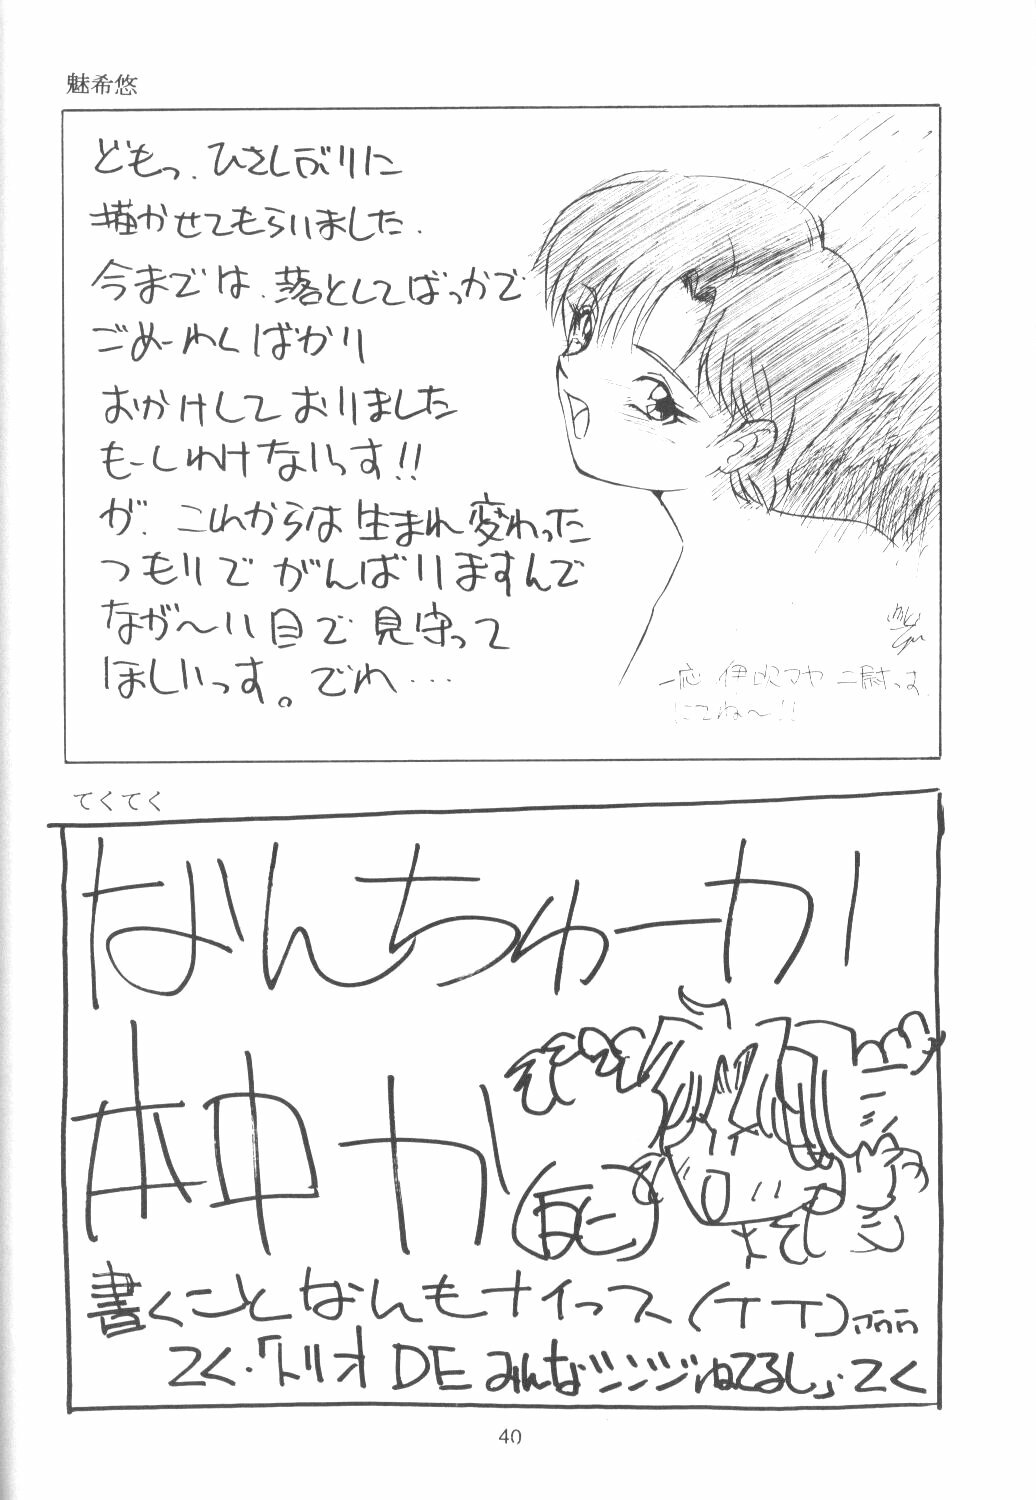 魅希悠
どもっ、ひさしぶりに
描かせてもらいました.
今までは、落としてばっかで
ごめーわくばかり
おかけしておりました
もーしわけないっす!!
が、これからは生まれ変わった
つもりでがんばりますんで
なが〜い目で見守って
ほしいっす。でわ…
一応 伊吹マヤ二尉っす.
にてね〜!!
てくてく
なんちゅーかい
か
書くことなんもナイっス(TT)
てく・「トリオDEみんな
てるし」・てく
40